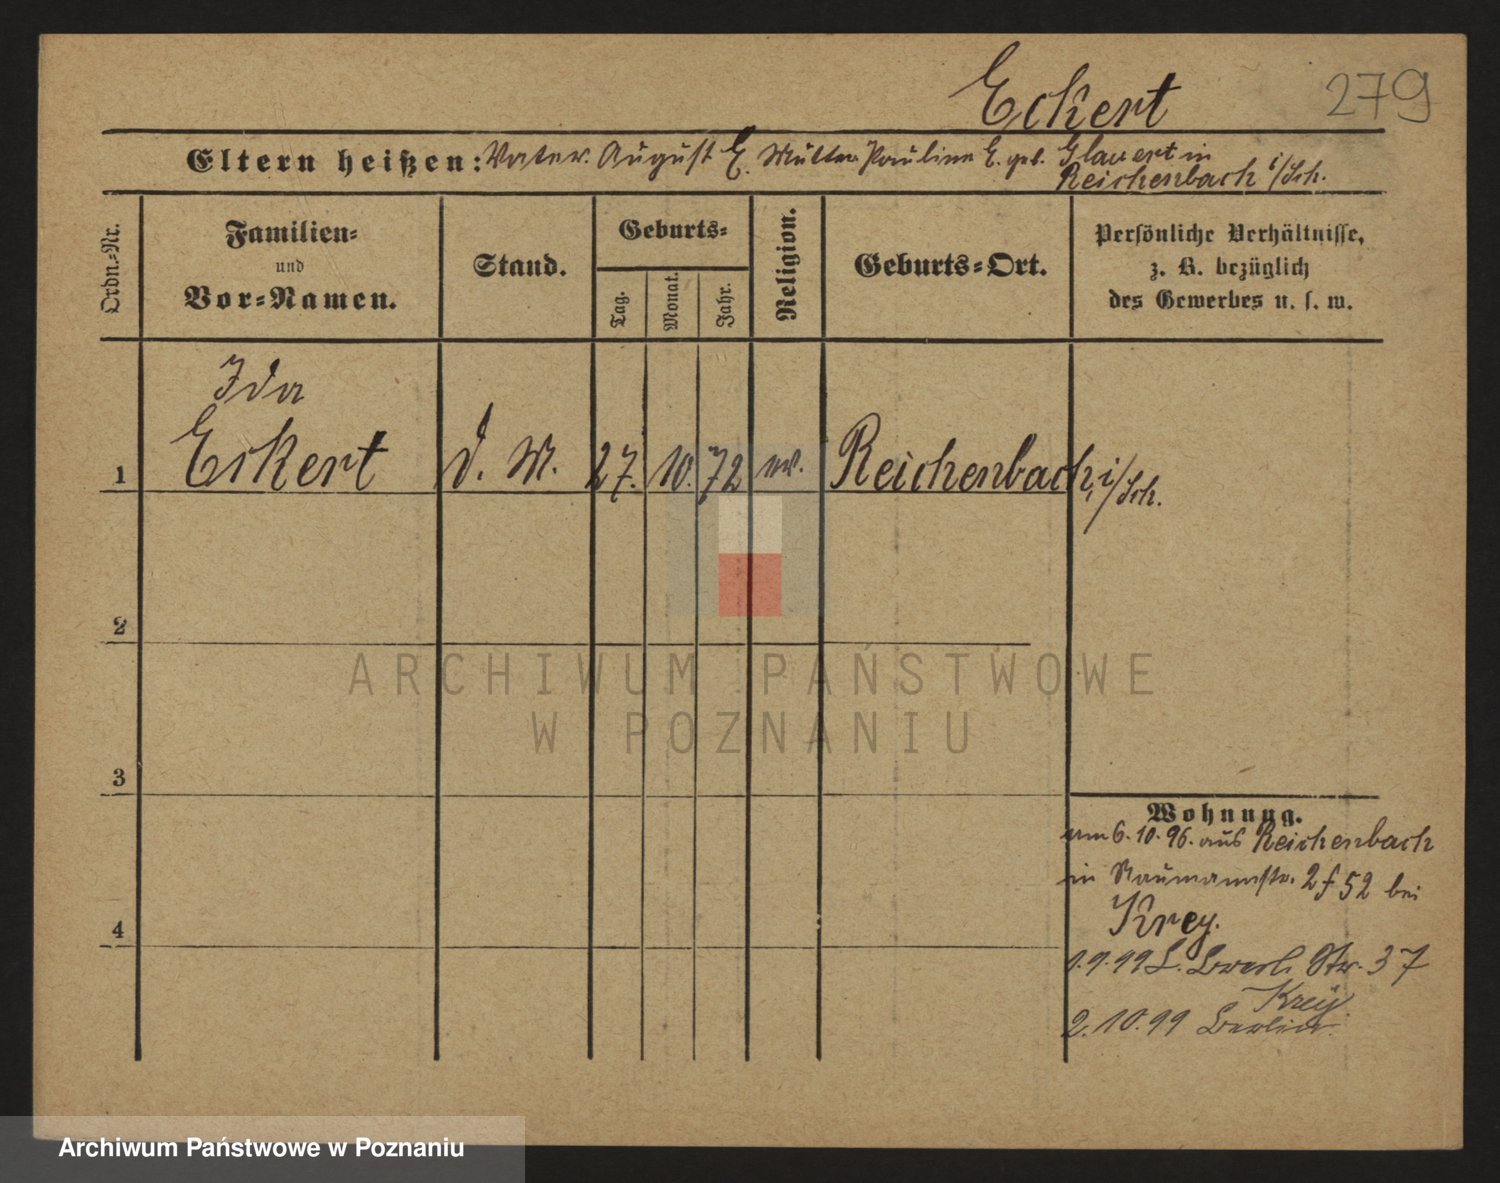 Eckert
279
Eltern heißen: Vater August E. Mutter Pauline E. geb. Glauert in
Reichenbach i/Sch.
Ordn.-Nr.
Familien-
und
Vor-Namen.
Stand.
Geburts-
Tag.
Monat.
Jahr.
Religion.
Geburts-Ort.
Persönliche Verhältnisse,
z. B. bezüglich
des Gewerbes u. s. w.
Ida
1 Eckert d. M. 27. 10. 72 ev. Reichenbach i/Sch.
2
3
4
Wohnung.
am 6.10.96. aus Reichenbach
in Naumannstr. 2 f 52 bei
Krey.
1.9.99 Str. 37
Krey
2.10.99 Berlin.
ARCHIWUM PAŃSTWOWE
W POZNANIU
Archiwum Państwowe w Poznaniu